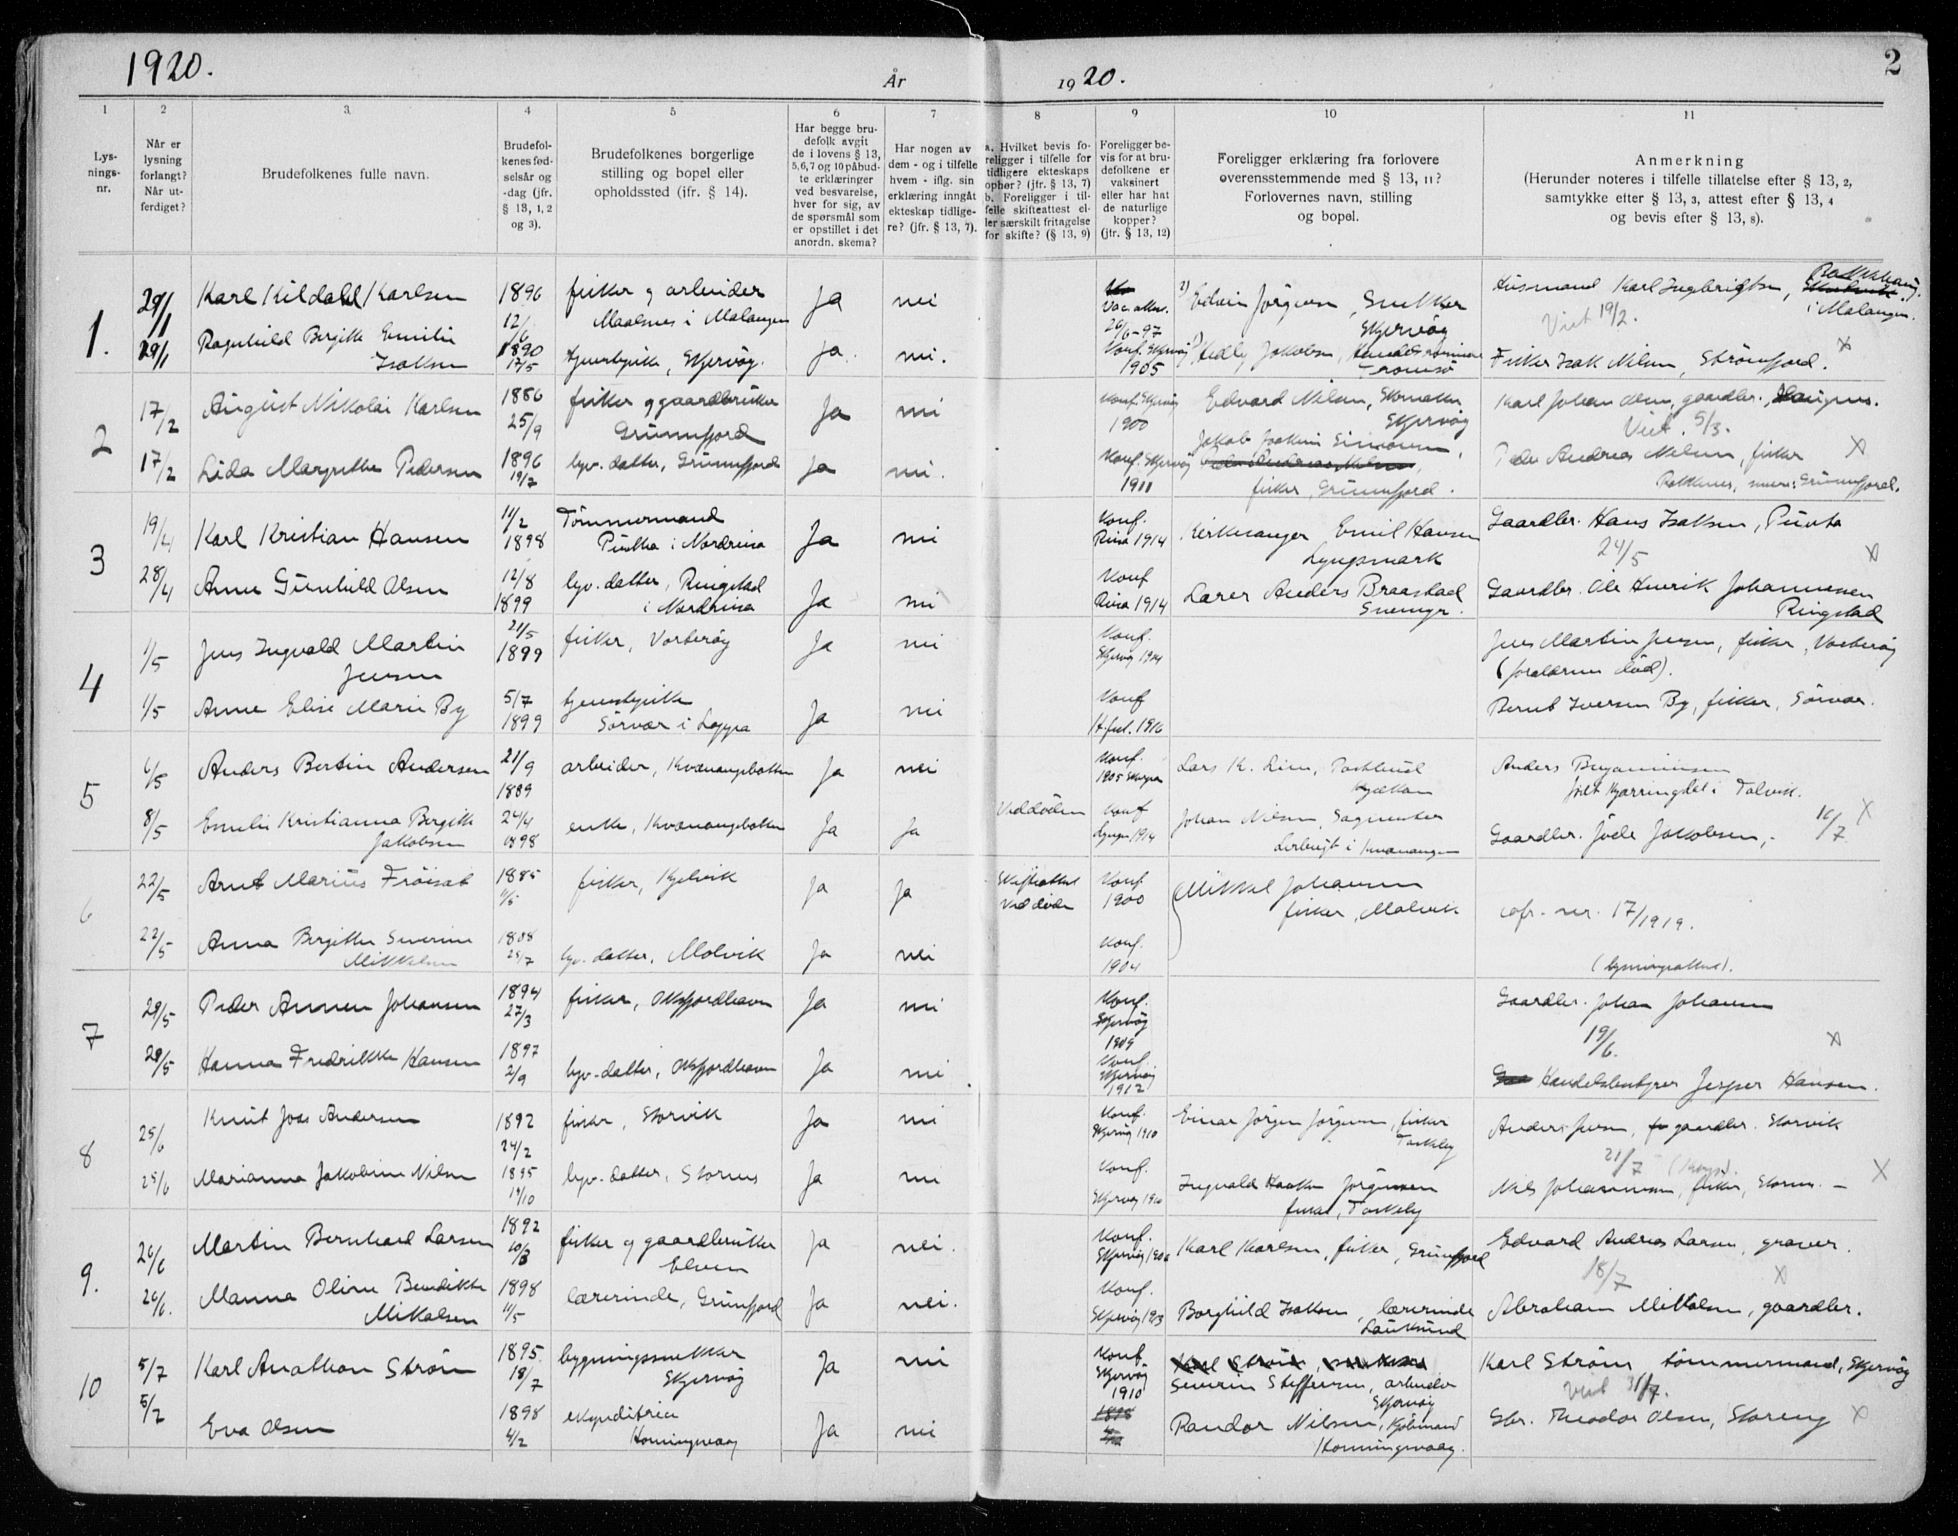 1920.
År
1920.
2
1
2
3.
4
5
6
7
8
9
10
11
Lys-
nings-
nr.
Når er
lysning
forlangt?
Når ut-
ferdiget?
Brudefolkenes fulle navn.
Brudefol-
kenes fød-
selsår og
-dag (jfr.
§ 13, 1, 2
og 3).
Brudefolkenes borgerlige
stilling og bopel eller
opholdssted (ifr. § 14).
Har begge bru-
defolk avgit
de i lovens § 13,
5,6,7 og 10 påbud-
te erklæringer
ved besvarelse,
hver for sig, av
de spørsmål som
er opstillet i det
anordn. skema?
Har nogen av
dem - og i tilfelle
hvem - iflg. sin
erklæring inngåt
ekteskap tidlige-
re? (jfr. § 13, 7).
a. Hvilket bevis fo-
religger i tilfelle for
tidligere ekteskaps
ophør? (jfr. § 13, 7)
b. Foreligger i til-
felle skifteattest el-
ler særskilt fritagelse
for skifte? (§ 13, 9)
Foreligger be-
vis for at bru-
defolkene er
vaksinert
eller har hat
de naturlige
kopper?
(jfr. § 13, 12)
Foreligger erklæring fra forlovere
overensstemmende med § 13, 11?
Forlovernes navn, stilling
og bopel.
Anmerkning
(Herunder noteres i tilfelle tillatelse efter § 13, 2,
samtykke efter § 13, 3, attest efter § 13, 4
og bevis efter § 13, 8).
1.
29/1
Karl Kildahl Karlsen
1896
12/6
fisker og arbeider
Maalsnes i Malangen
Ja
nei
26/6-97
2) Edvin Jørgensen, Snekker
Skjervøy
Husmand Karl Ingebrigtsen,
i Malangen.
Viet 19/2.
29/1
Ragnhild Birgitte Emilie
Isaksen
1890
17/5
tjenestepike, Skjervøy.
Ja.
nei.
Konf. Skjervøy
1905
Jakobsen,
Tromsø
Fisker Isak Nilsen, Strömfjord.
X
2
17/2
August Nikolai Karlsen
1886
25/9
fisker og gaardbruker
Grunnfjord
Ja
nei
Konf. Skjervøy
1900
Edvard Nilsen, Skomaker
Skjervøy
Karl Johan Olsen, gaardbr.,
Viet. 5/3.
17/2
Lida Margrethe Pedersen
1896
19/7
hjv. datter, Grunnfjord
Ja
nei.
Konf. Skjervøy
1911
Jakob Joakim Simonsen,
fisker, Grunnfjord.
Peder Andreas Nilsen, fisker
X
3
19/4
Karl Kristian Hansen
11/2
1898
Tömmermand
Punta i Nordreisa
Ja
nei
Konf.
Reisa 1914
Kirkesanger Emil Hansen
Lyngsmark
Gaardbr. Hans Isaksen, Punta
24/5
X
28/4
Anne Gunhild Olsen
12/8
1899
hjv. datter, Ringstad
i Nordreisa
Ja
nei
Konf
Reisa 1914
Lærer Anders Braastad
Snemyr.
Gaardbr. Ole Henrik Johannessen
Ringstad
4
1/5
Jens Ingvald Martin
Jensen
21/5
1899
fisker, Vorterøy
Ja
nei
Konf.
Skjervøy 1914
Jens Martin Jensen, fisker, Vorterøy
(forældrene död).
1/5
Anne Elise Marie By
5/7
1899
tjenestepike
Sörvær i Loppa
Ja
nei
Konf
Bernt Iversen By, fisker, Sörvær.
5
6/5
Anders Bertin Andersen
21/9
1889
arbeider, Kvænangsbotten
Ja
nei
Konf.
Lars K. Rein,
Anders Benjaminsen
i Talvik.
8/5
Emilie Kristianna Birgitte
Jakobsen
24/4
1898
enke, Kvænangsbotten
Ja
Ja
Ved döden
Konf
Lyngen 1914
Johan Nilsen, Sagmester
i Kvænangen
Gaardbr. Joel Jakobsen,
16/7
X
6
22/5
Arnt Marius Fröiset
1885
fisker, Kjelvik
Ja
Ja
Skifteattest
Ved döden
Konf
1900
Mikkel Johansen
fisker, Molvik
cfr. nr. 17/1919.
22/5
Anna Birgitte Severine
Mikkelsen
25/7
hjv. datter, Molvik
Ja
nei
Konf.
1904
(lysningsattest).
7
29/5
Peder Annen Johansen
1894
27/3
fisker, Oksfjordhavn
Ja
nei
Konf.
Skjervøy
1909
Gaardbr. Johan Johansen
19/6.
X
29/5
Hanna Fredrikke Hansen
1897
2/9
hjv. datter, Oksfjordhavn
Ja
nei.
Konf.
Skjervøy
1912
Handelsbestyrer Jesper Hansen.
8
25/6
Knut Joas Andersen
1892
24/2
fisker, Storvik
Ja
nei
Konf.
Skjervøy 1910
Einar Jörgen Jörgensen, fisker
Taskeby
Anders Jensen, gaardbr. Storvik
21/7
25/6
Marianna Jakobine Nilsen
1895
19/10
hjv. datter, Stornes
Ja
nei
Konf.
Skjervøy 1910
Ingvald Haakon Jörgensen
fisker, Taskeby
Nils Johannessen, fisker, Stornes. –
X
9.
26/6
Martin Bernhard Larsen
1892
10/3
fisker og gaardbruker
Elven
Ja
nei.
Konf.
Skjervøy 1906
Karl Karlsen, fisker, Grunnfjord
Edvard Andreas Larsen, graver.
18/7
X
26/6.
Manna Oline Bendikte
Mikalsen
1898
11/5
lærerinde, Grunnfjord
Ja
nei.
Konf.
Skjervøy 1913
Borghild Isaksen, lærerinde
Lauksund
Abraham Mikkalsen, gaardbr.
10
5/7
Karl Anathon Ström
1895.
18/7
bygningssnekker
Skjervøy
Ja
nei
Konf
Skjervøy
1910
Karl Ström, snekker
Severin Steffensen, arbeider
Skjervøy
Karl Ström, tömmermand, Skjervøy
Viet 31/7.
5/7
Eva Olsen
1898
4/2
ekspeditrice
Honningsvaag
Ja
nei
1898
Randor Nilsen, Kjöbmand
Honningsvaag.
Gbr. Theodor Olsen, Storeng
X